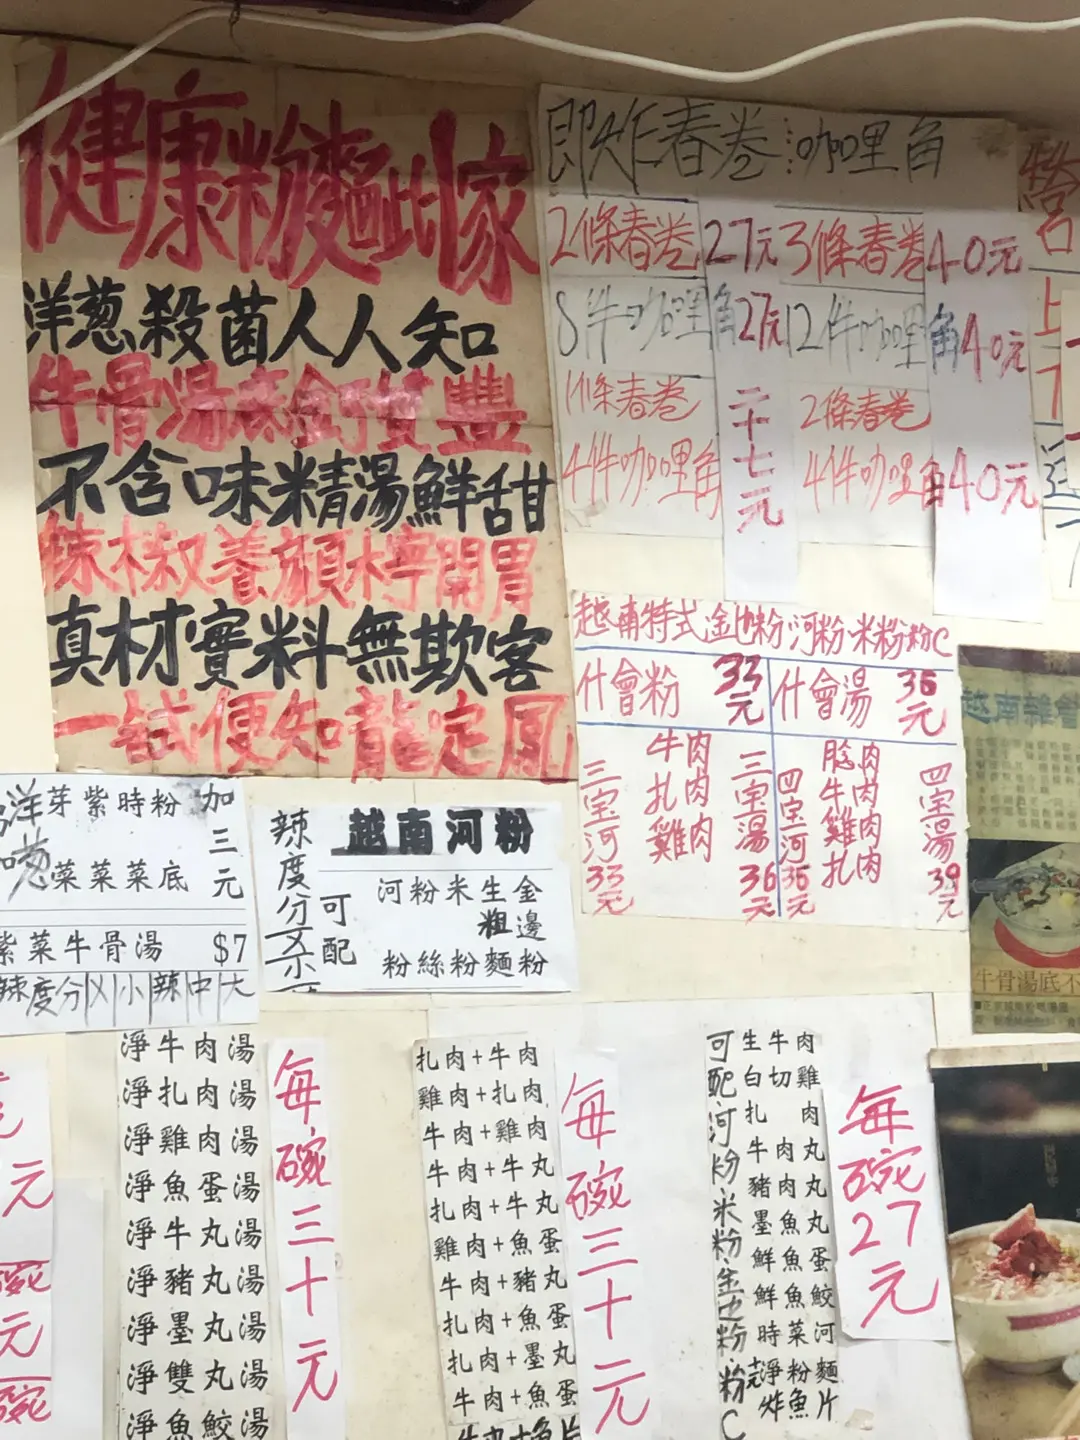 健康粉麵此家
洋葱殺菌人人知
牛骨湯底鈣質豐
不含味精湯鮮甜
辣椒養顏檸開胃
真材實料無欺客
一試便知龍定鳳
即炸春卷 咖哩角
2條春卷 27元 3條春卷 40元
8件咖哩角 27元 12件咖哩角 40元
1條春卷
4件咖哩角
二十七元
2條春卷
4件咖哩角 40元
越南特式金边粉河粉米粉粉C
什會粉 33元 什會湯 36元
三宝河 33元
牛肉
扎肉
雞肉
三宝湯 36元
四宝河 36元
腍肉
牛肉
雞肉
扎肉
四宝湯 39元
越南雜會
牛骨湯底不
洋葱
芽紫時粉
菜菜菜底
加三元
紫菜牛骨湯 $7
辣度分 X 小辣 中 大
辣度分X小
可配
越南河粉
河粉米生金
粗邊
粉絲粉麵粉
淨牛肉湯
淨扎肉湯
淨雞肉湯
淨魚蛋湯
淨牛丸湯
淨豬丸湯
淨墨丸湯
淨雙丸湯
淨魚鮫湯
每碗三十元
扎肉+牛肉
雞肉+扎肉
牛肉+雞肉
牛肉+牛丸
扎肉+牛丸
雞肉+魚蛋
牛肉+豬丸
扎肉+魚蛋
扎肉+墨丸
牛肉+魚蛋
每碗三十元
可配河粉米粉金边粉粉C
生牛肉
白切雞
扎肉
牛肉丸
豬肉丸
墨魚丸
鮮魚蛋
鮮魚鮫
時菜河
淨粉麵
炸魚片
每碗27元